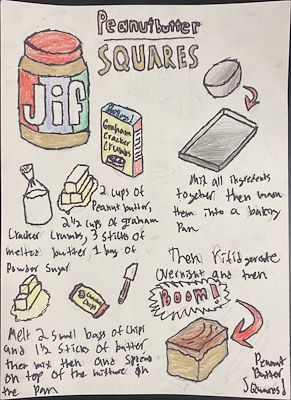 Peanutbutter
SQUARES
Jif
Graham
Cracker
Crumbs
2 cups of
Peanut butter,
2 1/2 cups of graham
Cracker Crumbs, 3 sticks of
melted butter 1 bag of
Powder Sugar
Mix all ingredients
together then mush
them into a baking
Pan
Then Rifidgerate
Overnight and then
BOOM!
Melt 2 small bags of chips
and 1 1/2 sticks of butter
then mix then and spread
on top of the mixture in
the Pan
Peanut
Butter
Squares!